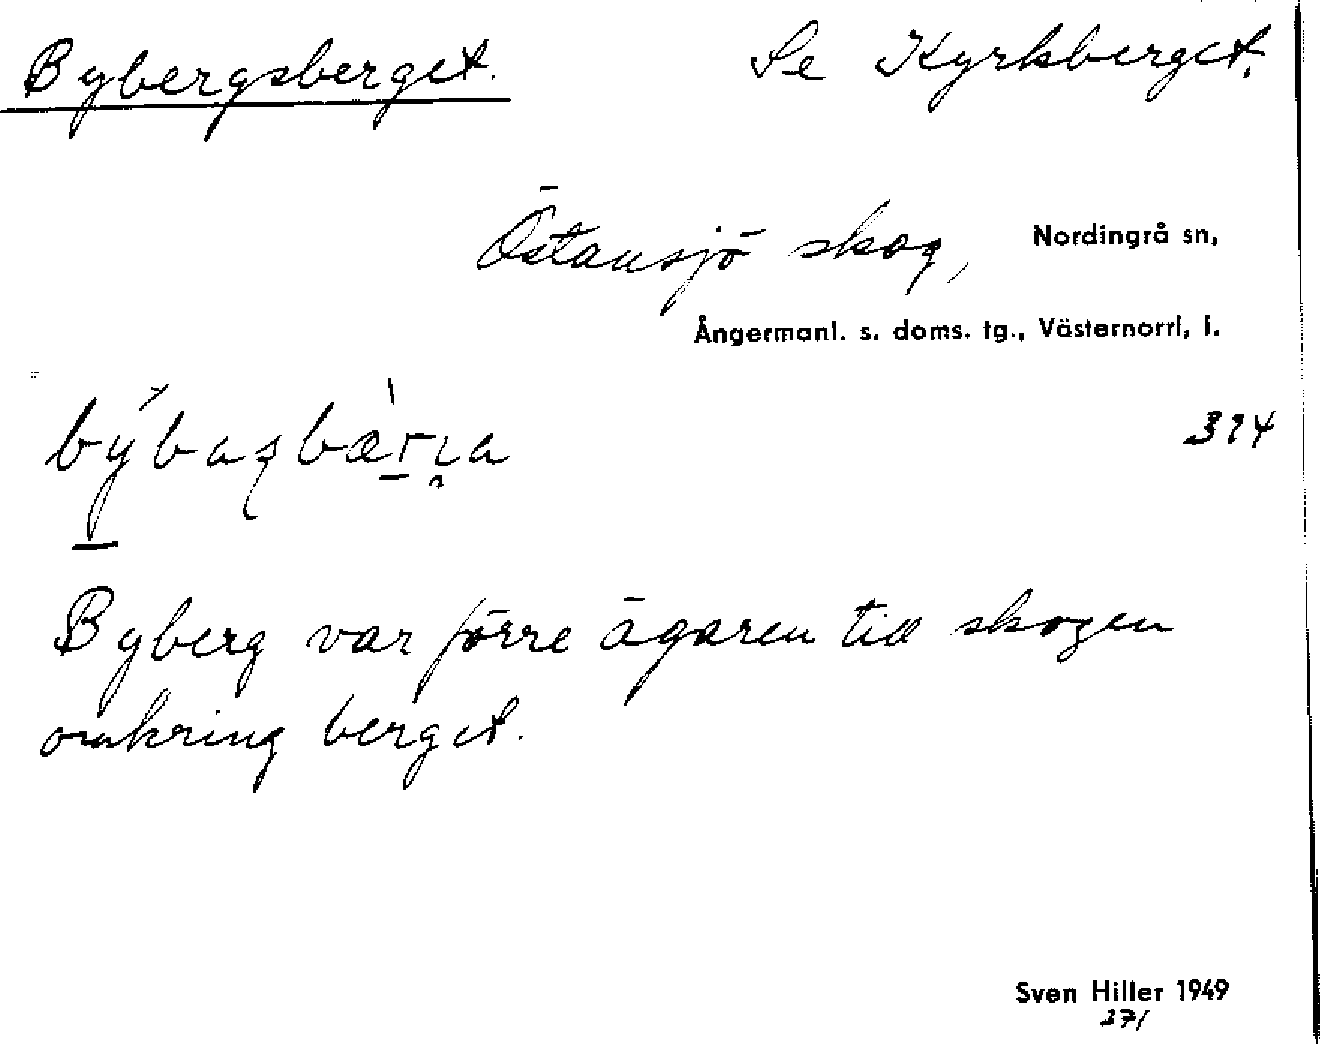 Bybergsberget. Se Kyrkberget.
Östansjö skog, Nordingrå sn,
Ångermanl. s. doms. tg., Västernorrl, l.
374
Byberg var förre ägaren till skogen
omkring berget.
Sven Hiller 1949
371